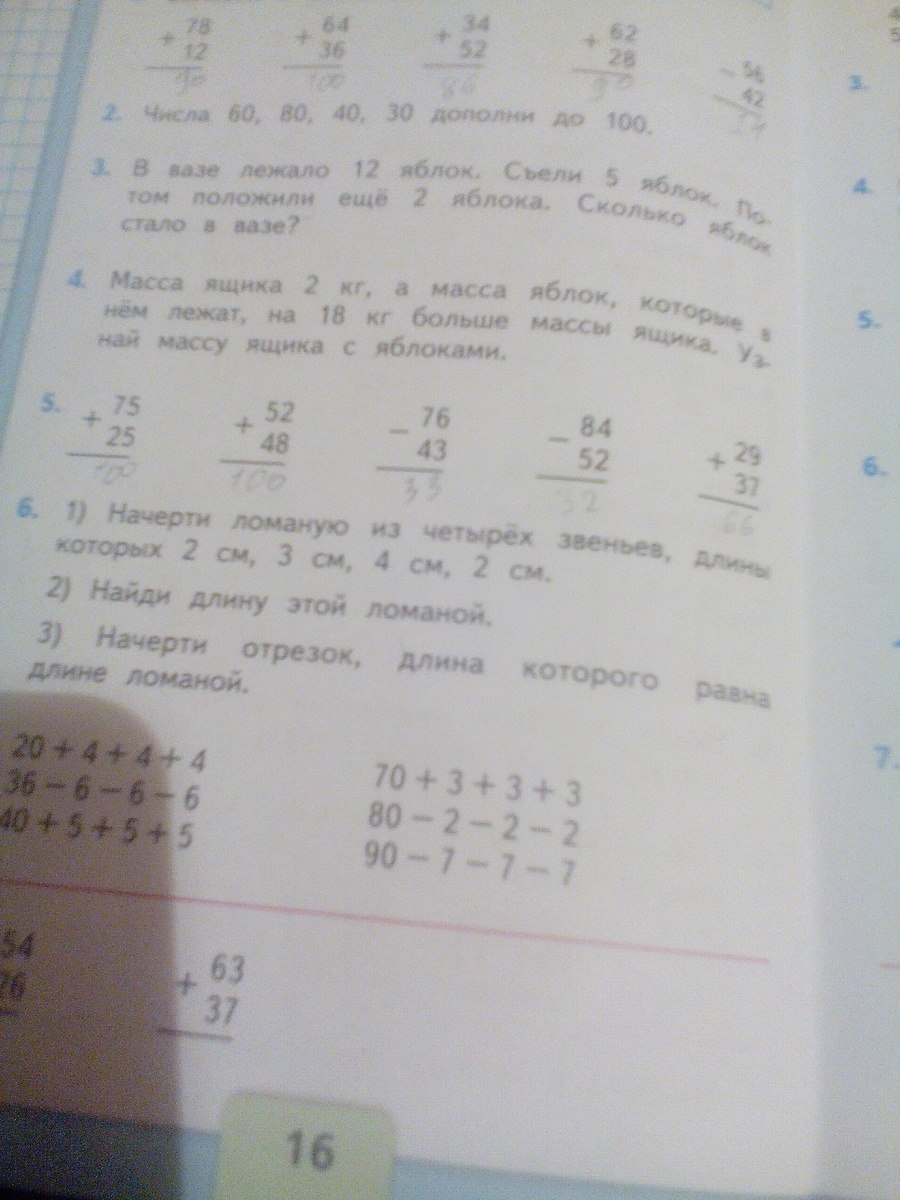 + 78 + 64 + 34 + 62 − 56
12 36 52 28 42
90 100 86 90
2. Числа 60, 80, 40, 30 дополни до 100.
3. В вазе лежало 12 яблок. Съели 5 яблок. По-
том положили ещё 2 яблока. Сколько яблок
стало в вазе?
4. Масса ящика 2 кг, а масса яблок, которые в
нём лежат, на 18 кг больше массы ящика. Уз-
най массу ящика с яблоками.
5. + 75 + 52 − 76 − 84 + 29
25 48 43 52 37
100 100 33 32 66
6. 1) Начерти ломаную из четырёх звеньев, длины
которых 2 см, 3 см, 4 см, 2 см.
2) Найди длину этой ломаной.
3) Начерти отрезок, длина которого равна
длине ломаной.
20 + 4 + 4 + 4 70 + 3 + 3 + 3
36 − 6 − 6 − 6 80 − 2 − 2 − 2
40 + 5 + 5 + 5 90 − 7 − 7 − 7
54 + 63
26 37
16
3.
4.
5.
6.
7.